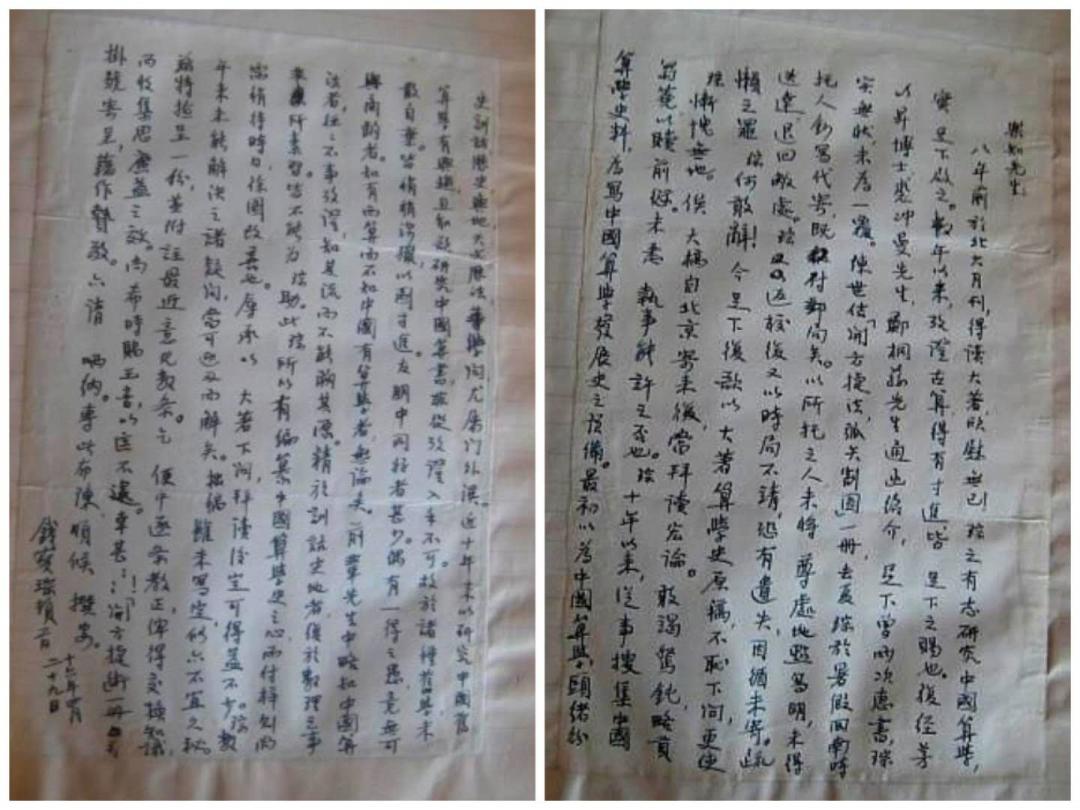 樂知先生:
八年前於北大月刊,得讀大著欣慰無已。琮之有志研究中國算學,
實足下啟之。數年以來,攷證古算,得有寸進,皆 足下之賜也。後經茅
以昇博士,裘沖曼先生,鄭桐蓀先生通函紹介,足下曾兩次惠書,琮
實無狀,未為一覆。陳世佶「開方捷法,弧矢割圓一冊,去夏琮於暑假回南時
托人鈔寫代寄,既付郵局矣。以所托之人未將 尊處地點寫明,未得
送達,退回敝處。琮返校後又以時局不靖,恐有遺失,因循未寄。疏
懶之罪,琮何敢辭!今足下復以 大著算學史原稿,不恥下問,更使
琮慚愧無地。俟 大稿自北京寄來後,當拜讀宏論。敢竭駑鈍,略貢
芻蕘以贖前愆。未悉 執事能許之否也。琮十年以來,從事搜集中國
算學史料,為寫中國算學發展史之預備。最初以為中國算學,頭緒紛
史訓詁歷史輿地天文曆法,等學問尤屬門外漢。近十年來以研究中國舊
算學有興趣且研究中國算書,從攷證入手不可。故於諸種舊學未
敢自棄,皆稍稍涉獵以圖寸進。友朋中同好者甚少,偶有一得之愚,竟無可
與商酌者。知有西算而不知中國有算學者,無論矣。前輩先生中略知中國算
法者,往往不事攷證,知其流而不能溯其源。精於訓詁史地者復於數理之事
非所素習,皆不能為琮助。此琮所以有編纂中國算學史之心而付梓
當稍待時日,徐圖改善也。辱承以 大著下詢,拜讀後定可得益不少。琮數
年來未能解決之諸疑問,當可迎刃而解矣。拙編雖未寫定似亦不宜久秘
茲特撿呈一份,並附註最近意見數條。乞 便中逐條教正,俾得交換知識
而收集思廣益之效。尚希時賜玉書,以匡不逮。幸甚…!「開方捷術一冊另
掛號寄呈,藉作贄敬。亦請 哂納。專此布陳 順候 撰安。
錢寶琮頓首
十六年四月
二十九日